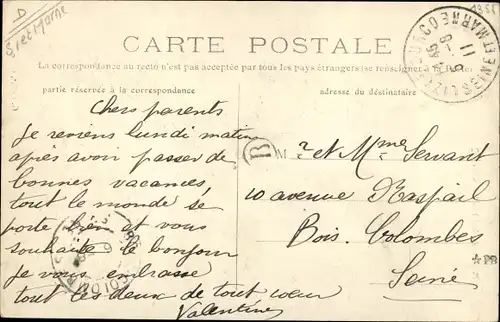 D
S et Marne
1351
CARTE POSTALE
La correspondance au recto n'est pas acceptée par tous les pays étrangers (se renseigner à la
partie réservée à la correspondance
adresse du destinataire
SEINE ET MARNE
11
Chers parents
Je reviens lundi matin
après avoir passer de
bonnes vacances,
tout le monde se
porte bien et vous
souhaite le bonjour
je vous embrasse
tout les deux de tout cœur
Valentine
B
Mr et Mme Servant
10 avenue Raspail
Bois. Colombes
Seine